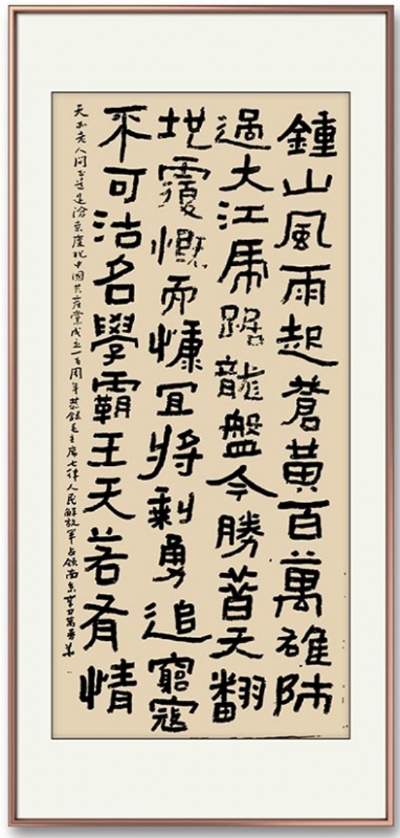 鍾山風雨起蒼黄百萬雄師
過大江虎踞龍盤今勝昔天翻
地覆慨而慷宜將剩勇追窮寇
不可沽名學霸王天若有情
天亦老人间正道是滄桑慶祝中國共産黨成立一百周年恭録毛主席七律人民解放軍占領南京辛丑